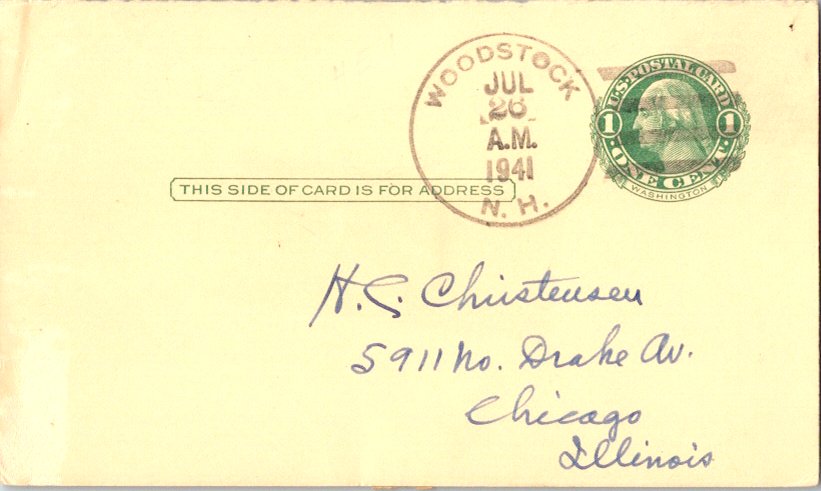 WOODSTOCK
JUL
26
A.M.
1941
N. H.
U.S. POSTAL CARD
1 1
ONE CENT
WASHINGTON
THIS SIDE OF CARD IS FOR ADDRESS
H. C. Christensen
5911 No. Drake Av.
Chicago
Illinois